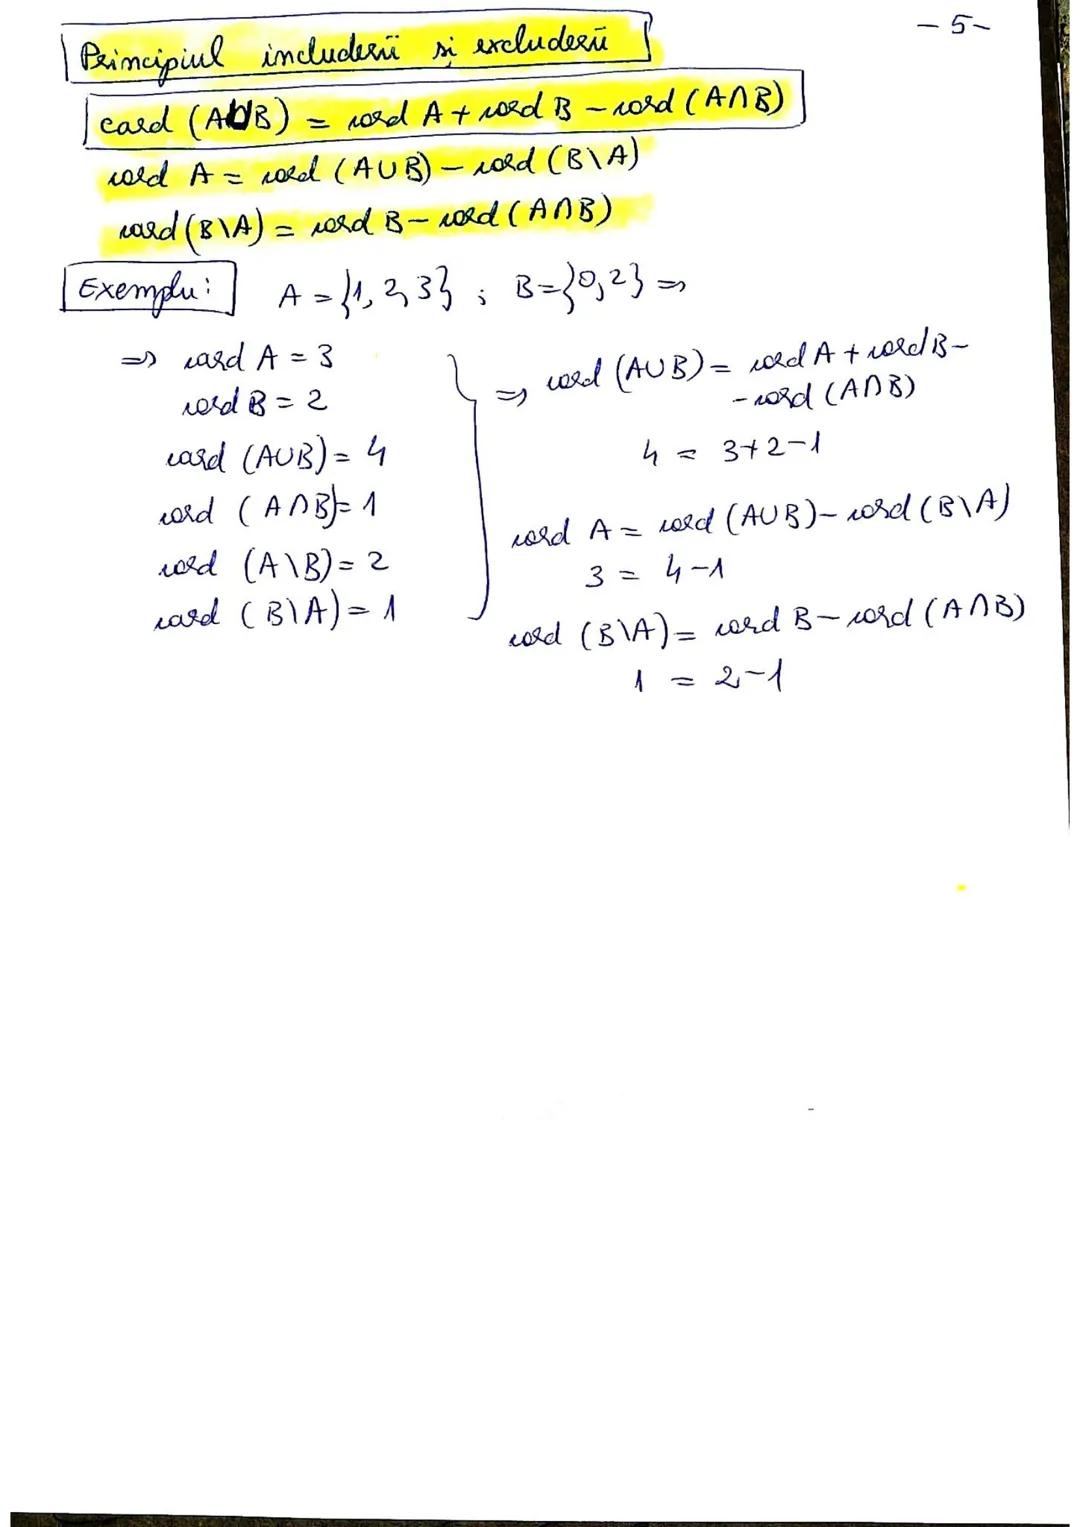 - 5 -
Principiul includerii și excluderii
card (A∪B) = card A + card B - card (A∩B)
card A = card (A∪B) - card (B\A)
card (B\A) = card B - card (A∩B)
Exemplu: A = {1, 2, 3} ; B = {0, 2} =>
=> card A = 3
card B = 2
card (A∪B) = 4
card (A∩B) = 1
card (A\B) = 2
card (B\A) = 1
=> card (A∪B) = card A + card B -
- card (A∩B)
4 = 3+2-1
card A = card (A∪B) - card (B\A)
3 = 4-1
card (B\A) = card B - card (A∩B)
1 = 2-1